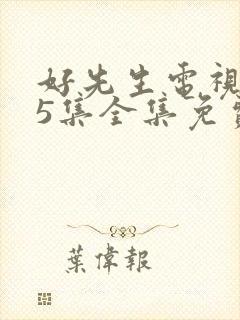 好先生電視
5集全集免費
葉偉報